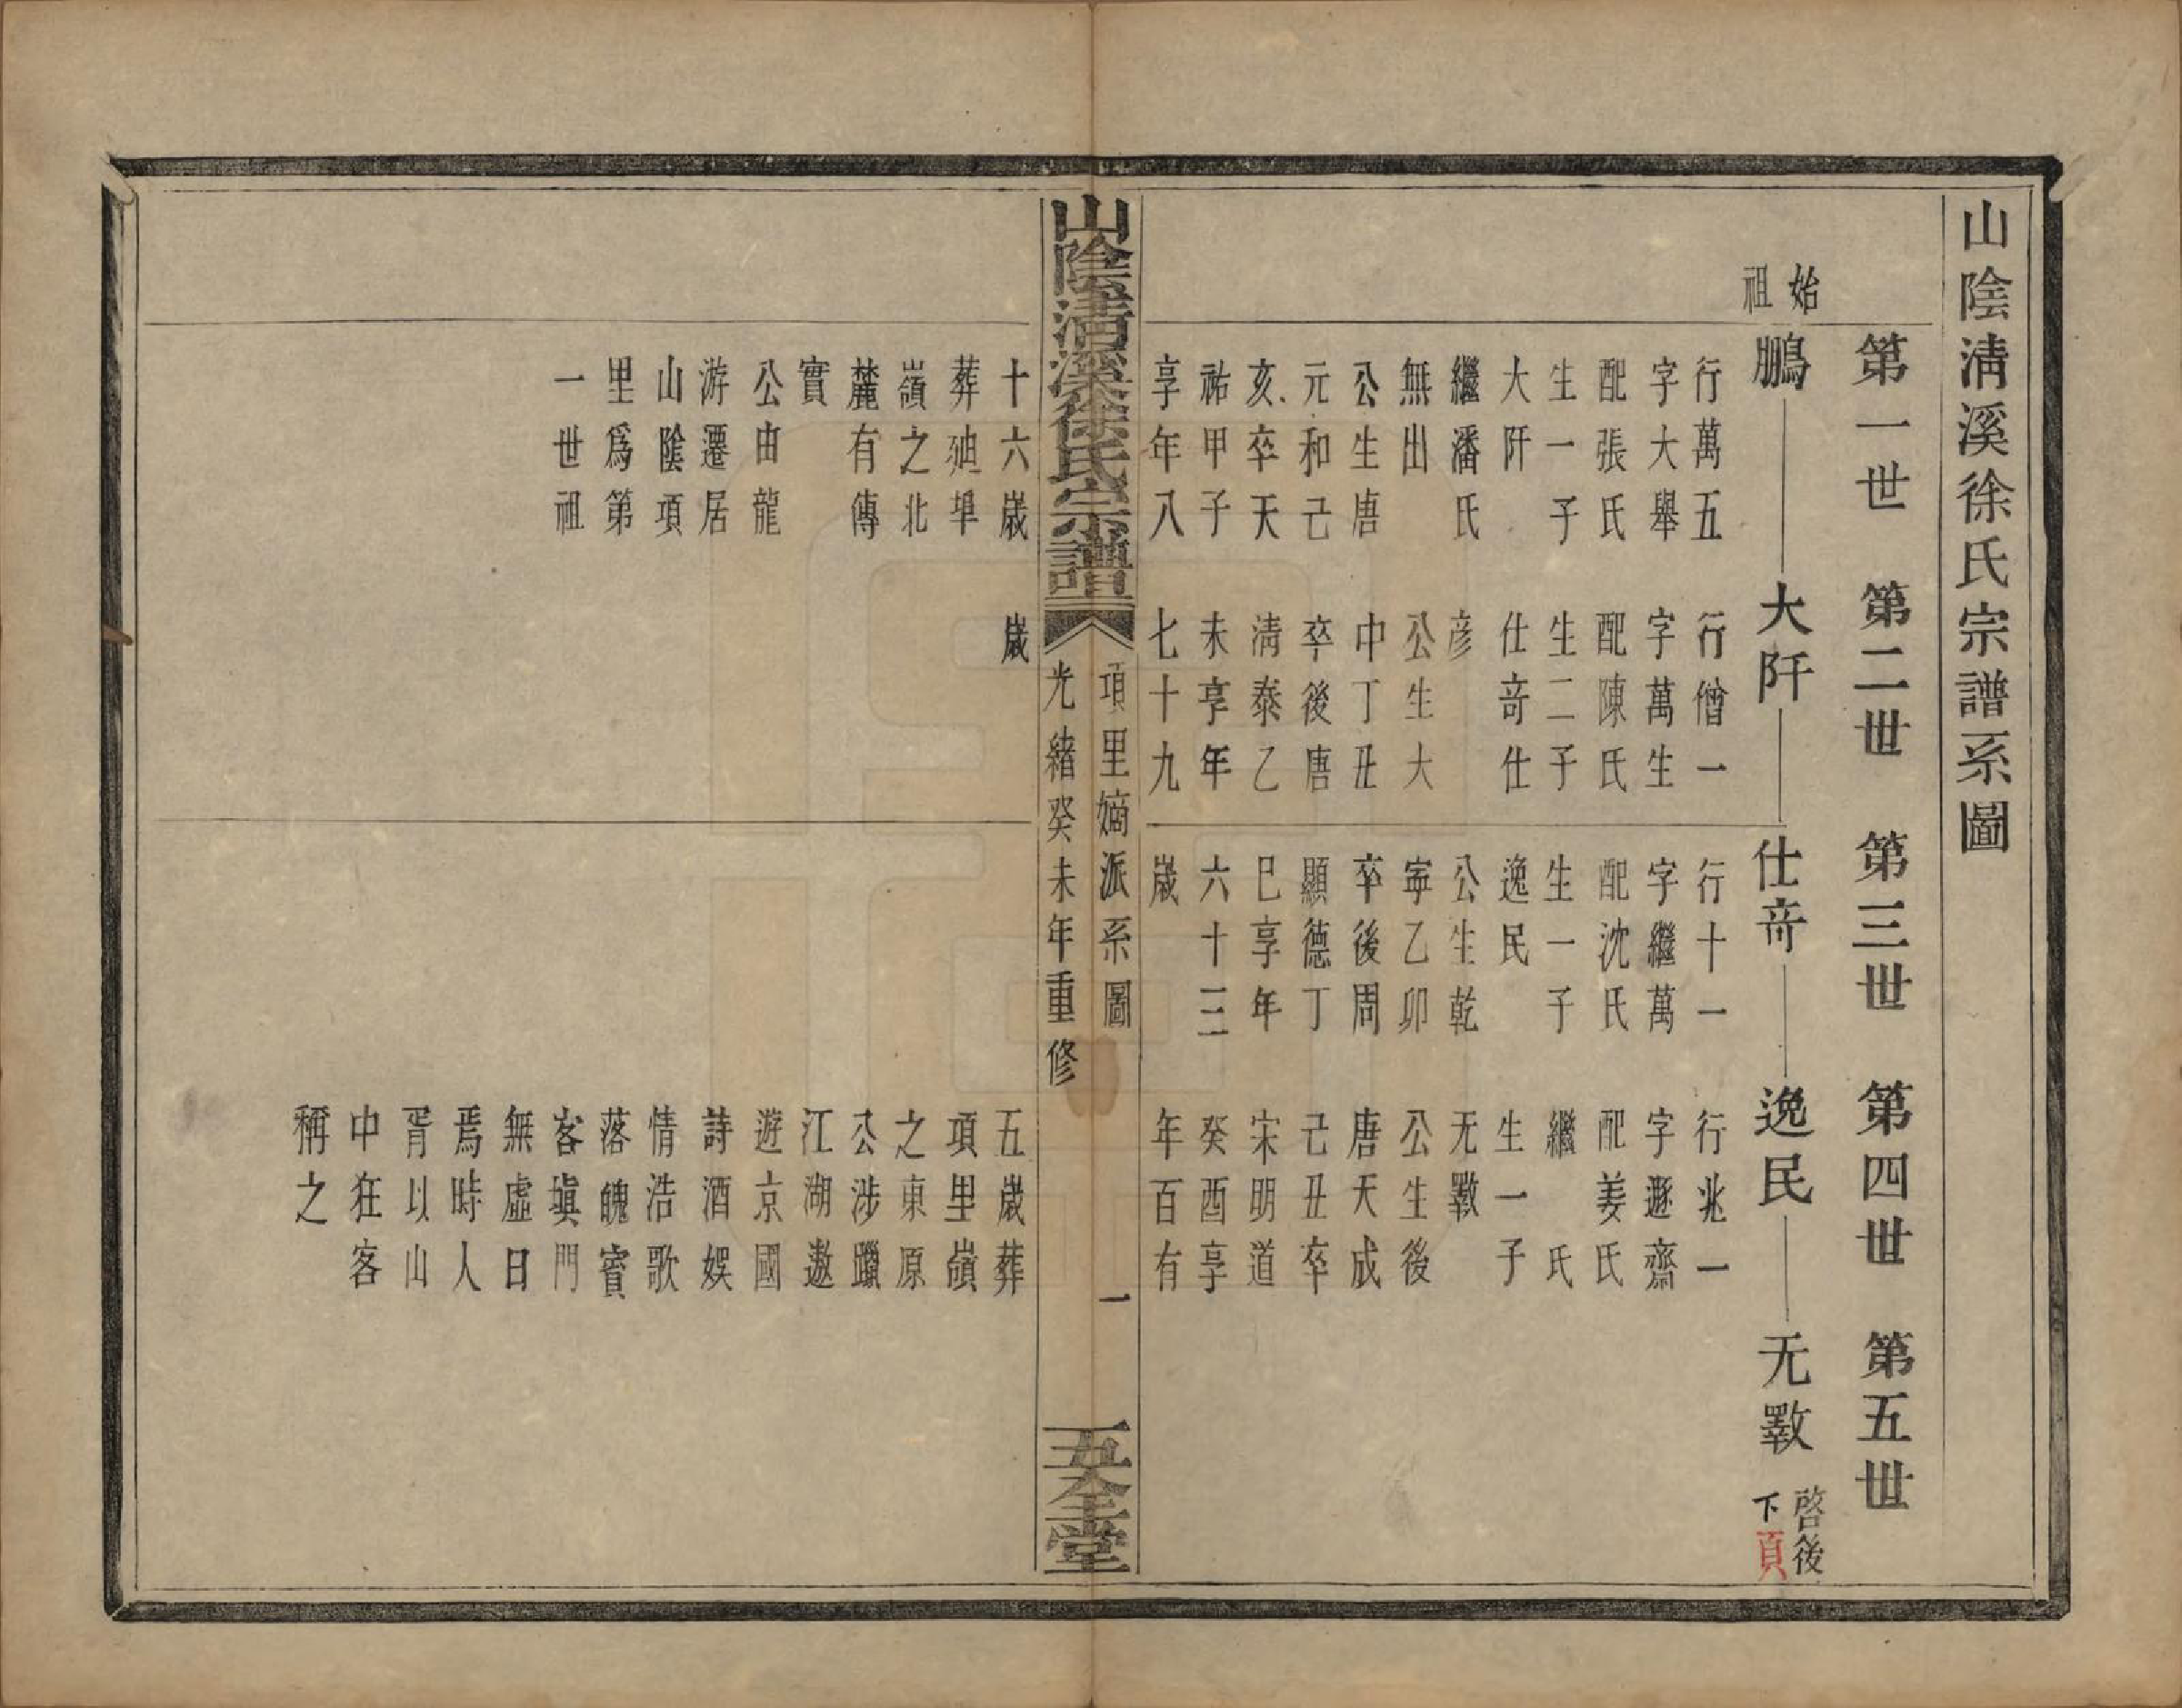 山陰淸溪徐氏宗譜系圖
第一世　第二世　第三世　第四世　第五世
始祖
鵬　大阡　仕竒　逸民　无斁　啓後下頁
行萬五
字大舉
配張氏
生一子
大阡
繼潘氏
無出
公生唐
元和己
亥卒天
祐甲子
享年八
十六歲
葬廸𭏟
嶺之北
麓有傳
實
公由龍
游遷居
山陰項
里爲第
一世祖
行僧一
字萬生
配陳氏
生二子
仕竒仕
彦
公生大
中丁丑
卒後唐
淸泰乙
未享年
七十九
歲
行十一
字繼萬
配沈氏
生一子
逸民
公生乾
寧乙卯
卒後周
顯德丁
巳享年
六十三
歲
行兆一
字遯齋
配姜氏
繼　氏
生一子
无斁
公生後
唐天成
己丑卒
宋明道
癸酉享
年百有
五歲葬
項里嶺
之東原
公涉躐
江湖遨
遊京國
詩酒娛
情浩歌
落魄賓
客塡門
無虛日
焉時人
胥以山
中狂客
稱之
山陰淸溪徐氏宗譜
項里嫡派系圖
一
光緖癸未年重修
五全堂